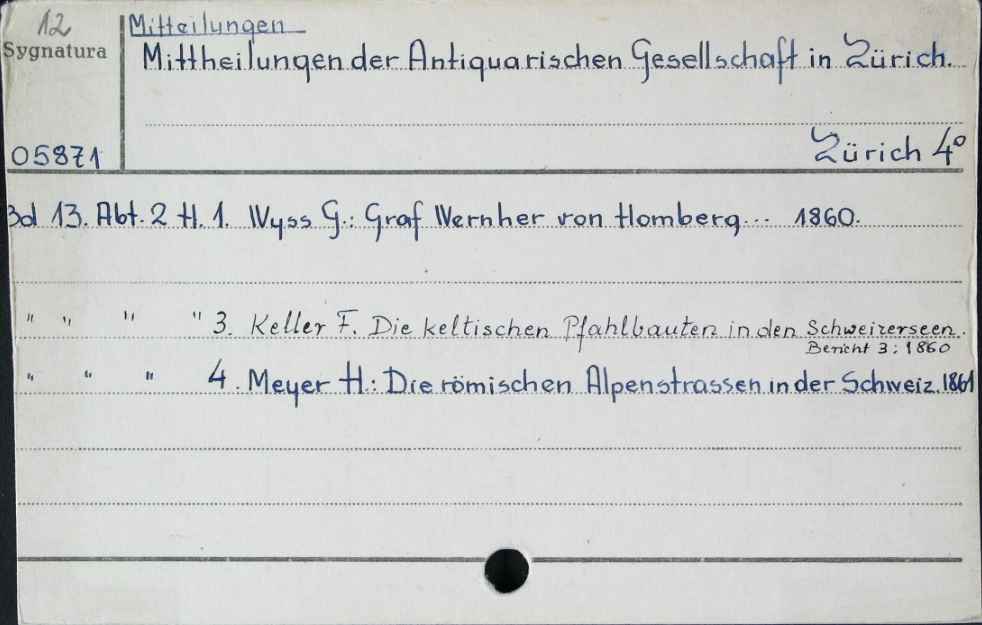 12
Mitteilungen
Sygnatura
Mittheilungen der Antiquarischen Gesellschaft in Zürich.
05871
Zürich 4°
Bd 13. Abt. 2 H. 1. Wyss G.: Graf Wernher von Homberg... 1860.
" " " " 3. Keller F. Die keltischen Pfahlbauten in den Schweizerseen.
Bericht 3; 1860
" " " 4. Meyer H.: Die römischen Alpenstrassen in der Schweiz. 1861